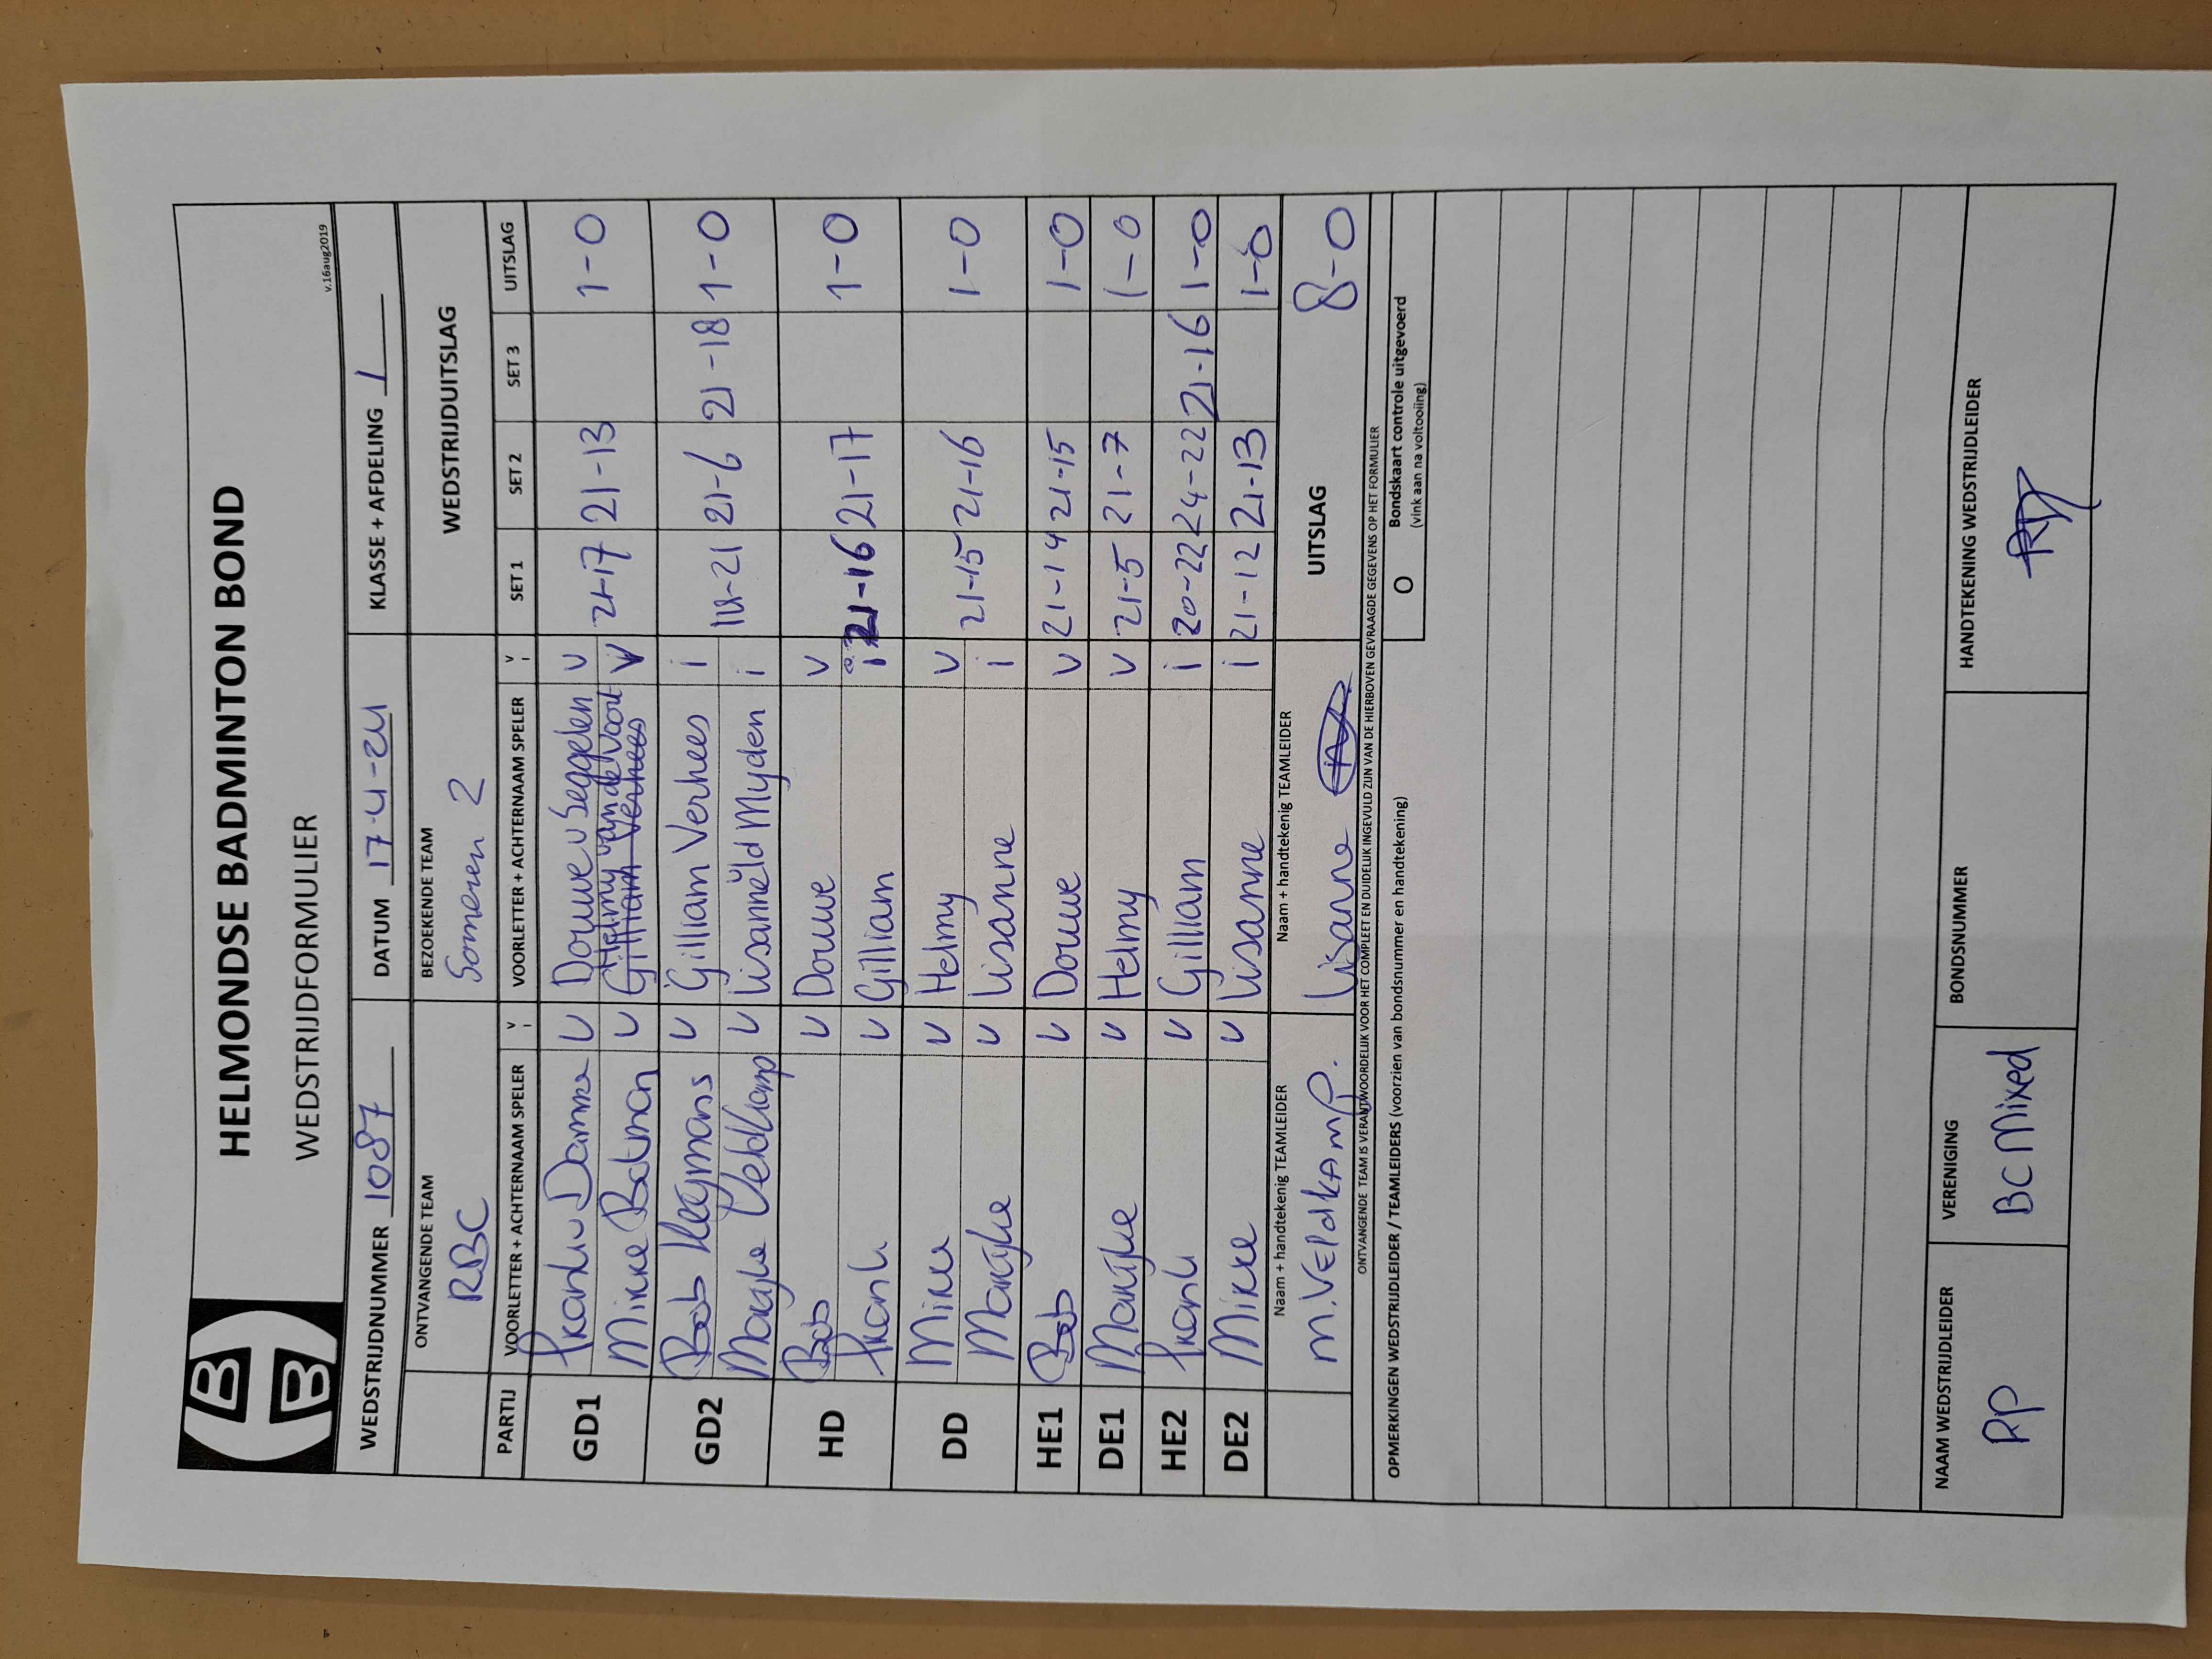 HELMONDSE BADMINTON BOND
WEDSTRIJDFORMULIER
v.16aug2019
WEDSTRIJDNUMMER 1087 DATUM 17-4-24 KLASSE + AFDELING 1
ONTVANGENDE TEAM BEZOEKENDE TEAM WEDSTRIJDUITSLAG
RBC Someren 2
PARTIJ VOORLETTER + ACHTERNAAM SPELER V I VOORLETTER + ACHTERNAAM SPELER V I SET 1 SET 2 SET 3 UITSLAG
GD1 Frank v Damme V Douwe v Seggelen V 21-17 21-13 1-0
Mirke Bauman V Helmy van de Voort V
Gilliam Verhees
GD2 Bob Kleijmans V Gilliam Verhees i 18-21 21-6 21-18 1-0
Marijke Veldkamp V Lisanne vd Myden i
HD Bob V Douwe V 21-16 21-17 1-0
Frank V Gilliam i
DD Mirke V Helmy V 21-15 21-16 1-0
Marijke V Lisanne i
HE1 Bob V Douwe V 21-14 21-15 1-0
DE1 Marijke V Helmy V 21-5 21-7 1-0
HE2 Frank V Gilliam i 20-22 24-22 21-16 1-0
DE2 Mirke V Lisanne i 21-12 21-13 1-0
Naam + handtekenig TEAMLEIDER Naam + handtekenig TEAMLEIDER UITSLAG 8-0
M. Veldkamp. Lisanne
ONTVANGENDE TEAM IS VERANTWOORDELIJK VOOR HET COMPLEET EN DUIDELIJK INGEVULD ZIJN VAN DE HIERBOVEN GEVRAAGDE GEGEVENS OP HET FORMULIER
OPMERKINGEN WEDSTRIJDLEIDER / TEAMLEIDERS (voorzien van bondsnummer en handtekening) O Bondskaart controle uitgevoerd
(vink aan na voltooiing)
NAAM WEDSTRIJDLEIDER VERENIGING BONDSNUMMER HANDTEKENING WEDSTRIJDLEIDER
RP BC Mixed